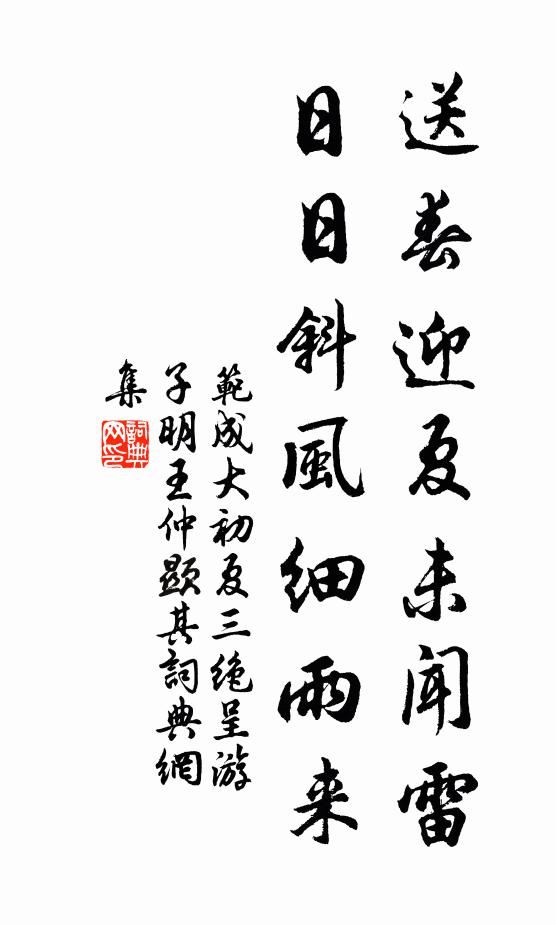 送春迎夏未闻雷
日日斜風细雨来
範成大初夏三绝呈游
子明王仲顯其詞典網
集
詞典网印